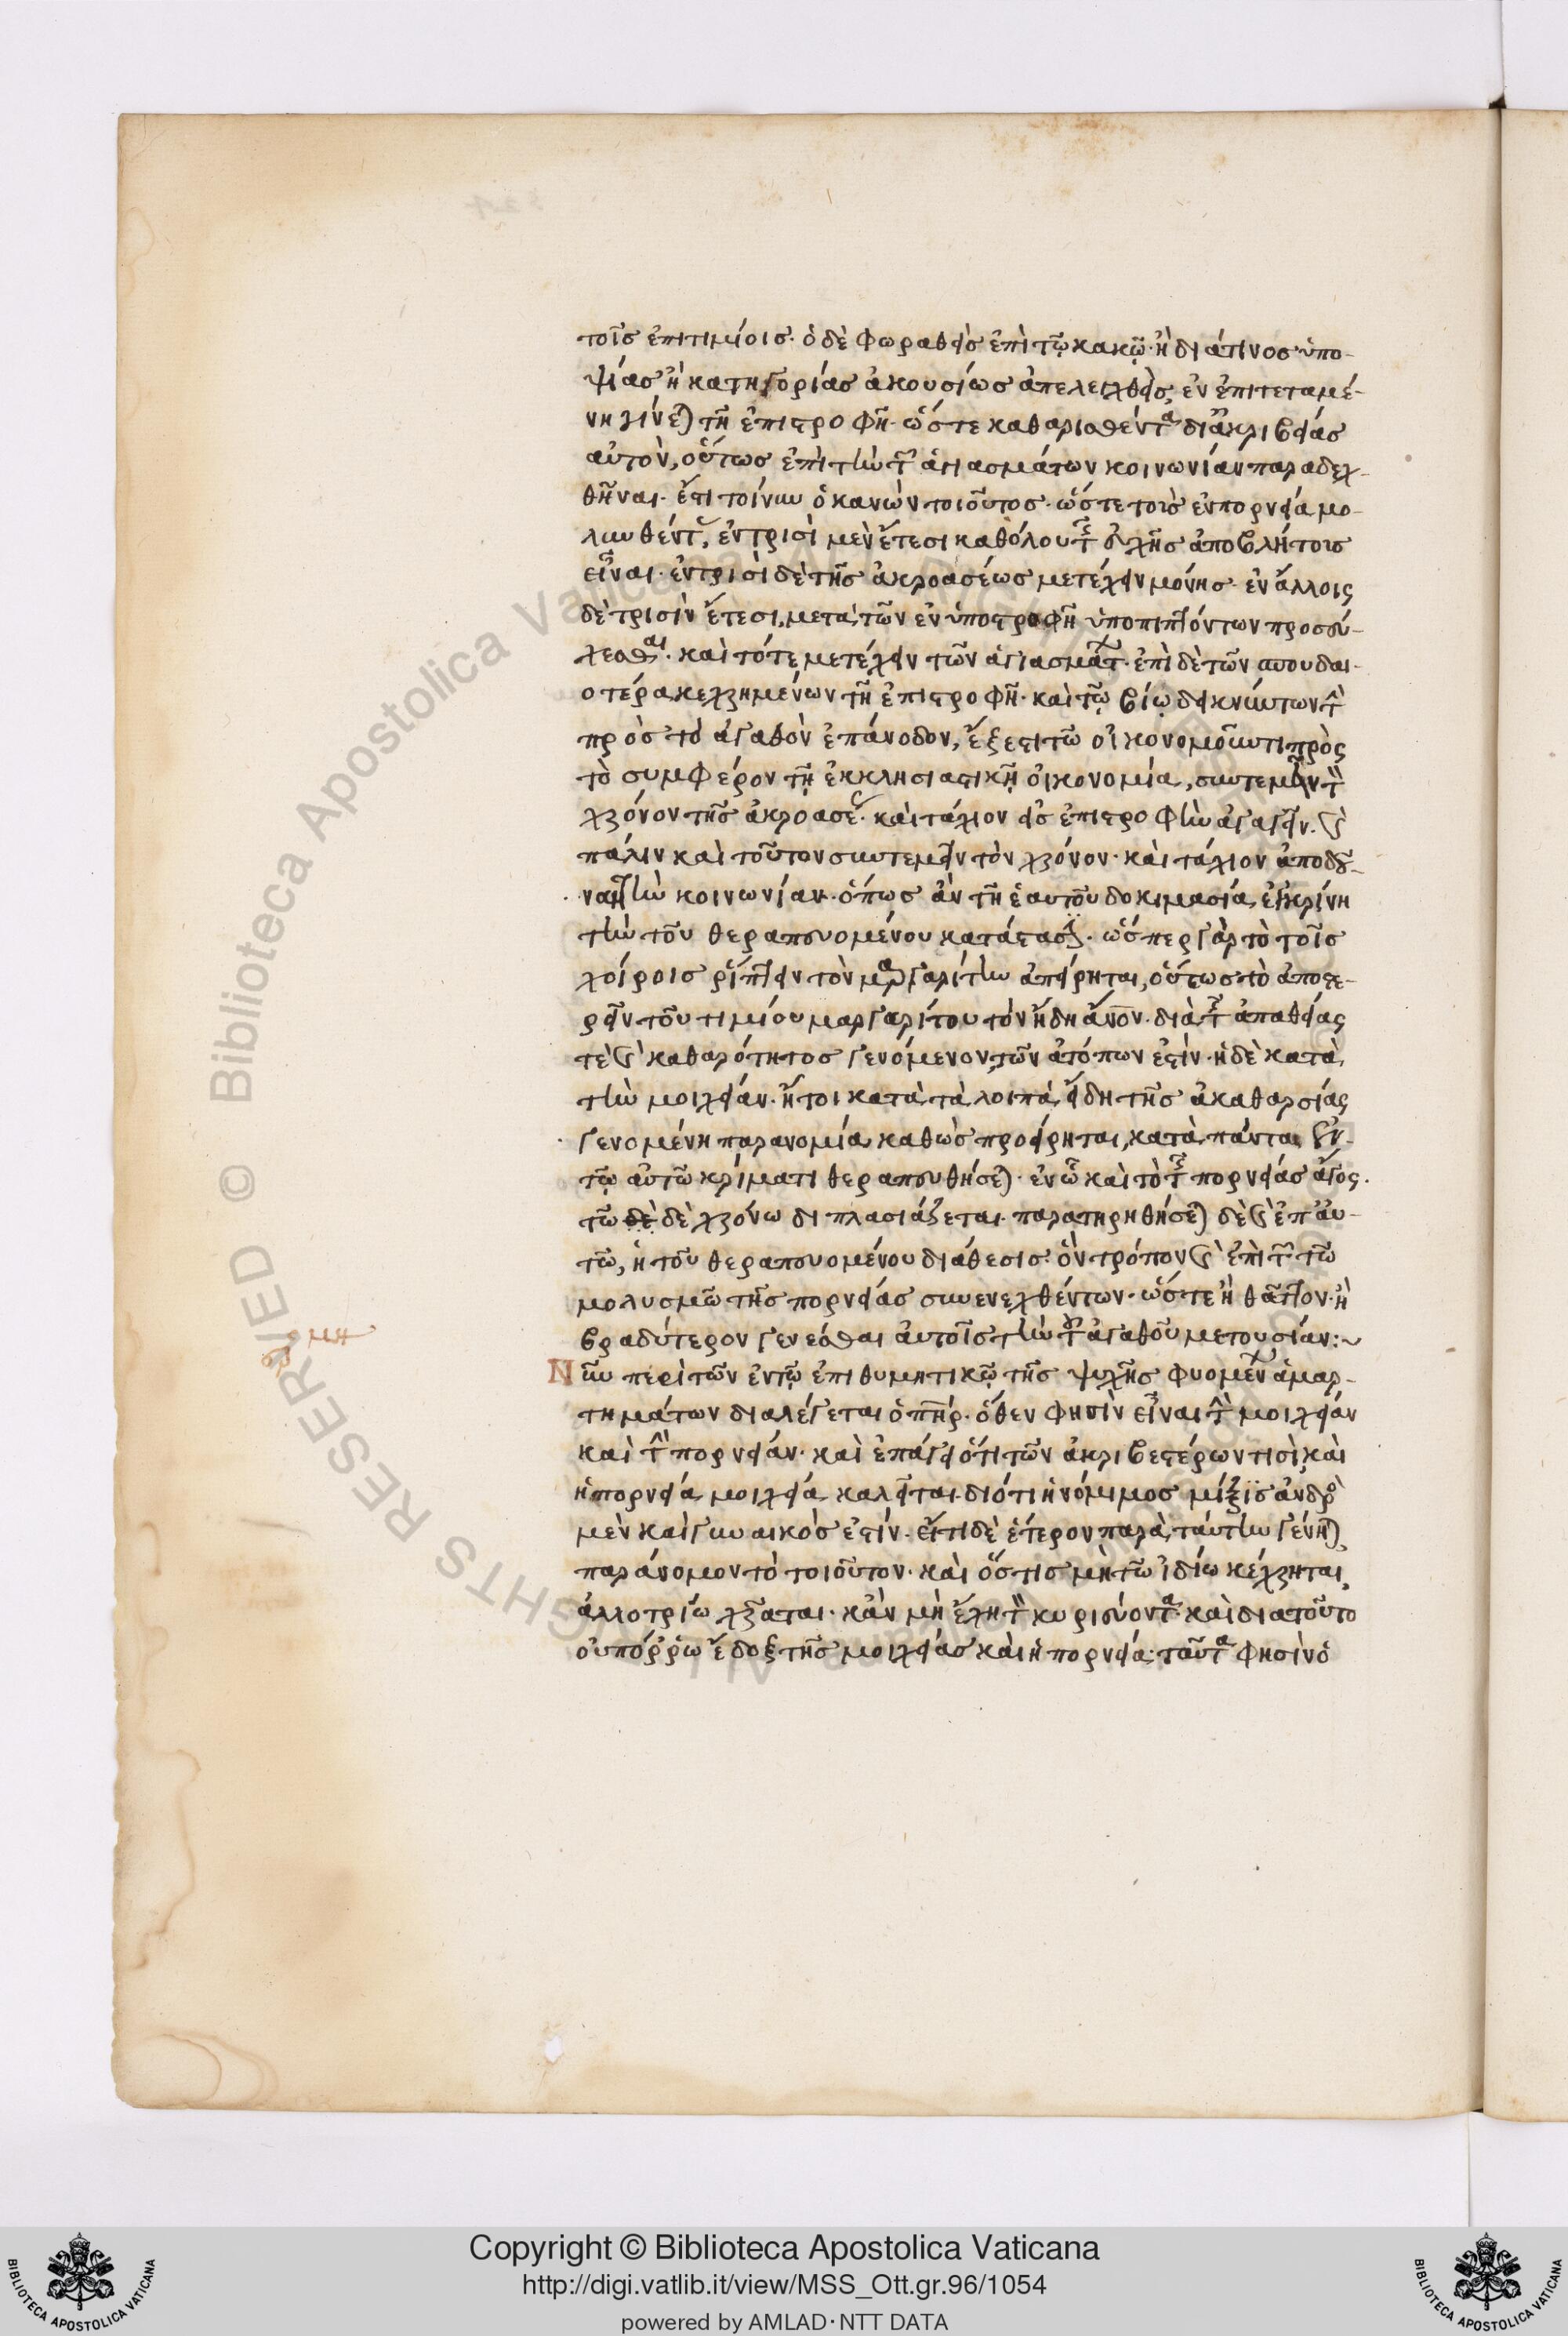 τοῖς ἐπιτιμίοις· ὁ δὲ φωραθεὶς ἐπὶ τῷ κακῷ· ἢ διά τινος ὑπο-
ψίας ἢ κατηγορίας ἀκουσίως ἀπελεγχθεὶς, ἐν ἐπιτεταμέ-
νῃ γίνεται τῇ ἐπιστροφῇ· ὥστε καθαρισθέντα δι' ἀκριβείας
αὐτὸν, οὕτως ἐπὶ τὴν τῶν ἁγιασμάτων κοινωνίαν παραδεχ-
θῆναι· ἔστι τοίνυν ὁ κανὼν τοιοῦτος· ὥστε τοὺς ἐν πορνείᾳ μο-
λυνθέντας, ἐν τρισὶ μὲν ἔτεσι καθόλου τῆς εὐχῆς ἀποβλήτους
εἶναι· ἐν τρισὶ δὲ τῆς ἀκροάσεως μετέχειν μόνης· ἐν ἄλλοις
δὲ τρισὶν ἔτεσι, μετὰ τῶν ἐν ὑποστροφῇ ὑποπιπτόντων προσεύ-
χεσθαι· καὶ τότε μετέχειν τῶν ἁγιασμάτων· ἐπὶ δὲ τῶν σπουδαι-
οτέρᾳ κεχρημένων τῇ ἐπιστροφῇ· καὶ τῷ βίῳ δεικνύντων τὴν
πρὸς τὸ ἀγαθὸν ἐπάνοδον, ἔξεστι τῷ οἰκονομοῦντι πρὸς
τὸ συμφέρον τῇ ἐκκλησιαστικῇ οἰκονομίᾳ, συντεμεῖν τὸν
χρόνον τῆς ἀκροάσεως· καὶ τάχιον εἰς ἐπιστροφὴν ἀγαγεῖν· καὶ
πάλιν καὶ τοῦτον συντεμεῖν τὸν χρόνον· καὶ τάχιον ἀποδοῦ-
ναι τὴν κοινωνίαν· ὅπως ἂν τῇ ἑαυτοῦ δοκιμασίᾳ ἐγκρίνῃ
τὴν τοῦ θεραπευομένου κατάστασιν· ὥσπερ γὰρ τὸ τοῖς
χοίροις ῥίπτειν τὸν μαργαρίτην ἀπείρηται, οὕτως τὸ ἀποστε-
ρεῖν τοῦ τιμίου μαργαρίτου τὸν ἤδη ἄνον· διὰ τῆς ἀπαθείας
τὲ καὶ καθαρότητος γενόμενον, τῶν ἀτόπων ἐστίν· ἡ δὲ κατὰ
τὴν μοιχείαν· ἤτοι κατὰ τὰ λοιπὰ εἴδη τῆς ἀκαθαρσίας
γενομένη παρανομία, καθὼς προείρηται, κατὰ πάντα ἐν
τῷ αὐτῷ κρίματι θεραπευθήσεται· ἐν ᾧ καὶ τὸ τῆς πορνείας ἄγος·
τῷ δὲ δὲ χρόνῳ διπλασιάζεται· παρατηρηθήσεται δὲ καὶ ἐπ' αὐ-
τῷ, ἡ τοῦ θεραπευομένου διάθεσις· ὃν τρόπον καὶ ἐπὶ τῶν τῷ
μολυσμῷ τῆς πορνείας συνενεχθέντων· ὥστε ἢ θᾶττον· ἢ
βραδύτερον γενέσθαι αὐτοῖς τὴν τοῦ ἀγαθοῦ μετουσίαν:~
Νῦν περὶ τῶν ἐν τῷ ἐπιθυμητικῷ τῆς ψυχῆς φυομένων ἁμαρ-
τημάτων διαλέγεται ὁ πηρ· ὅθεν φησὶν εἶναι τὴν μοιχείαν
καὶ τὴν πορνείαν· καὶ ἐπάγει ὅτι τῶν ἀκριβεστέρων τισὶ, καὶ
ἡ πορνεία μοιχεία καλεῖται· διότι ἡ νόμιμος μίξις ἀνδρὸς
μὲν καὶ γυναικός ἐστίν· εἴ τι δὲ ἕτερον παρὰ ταύτην γένηται,
παράνομον τὸ τοιοῦτον· καὶ ὅστις μὴ τῷ ἰδίῳ κέχρηται,
ἀλλοτρίῳ χρᾶται· κἂν μὴ ἔχῃ τὸν κυριεύοντα· καὶ διατοῦτο
οὐ πόῤῥω ἔδοξε τῆς μοιχείας καὶ ἡ πορνεία· ταῦτα φησὶν ὁ